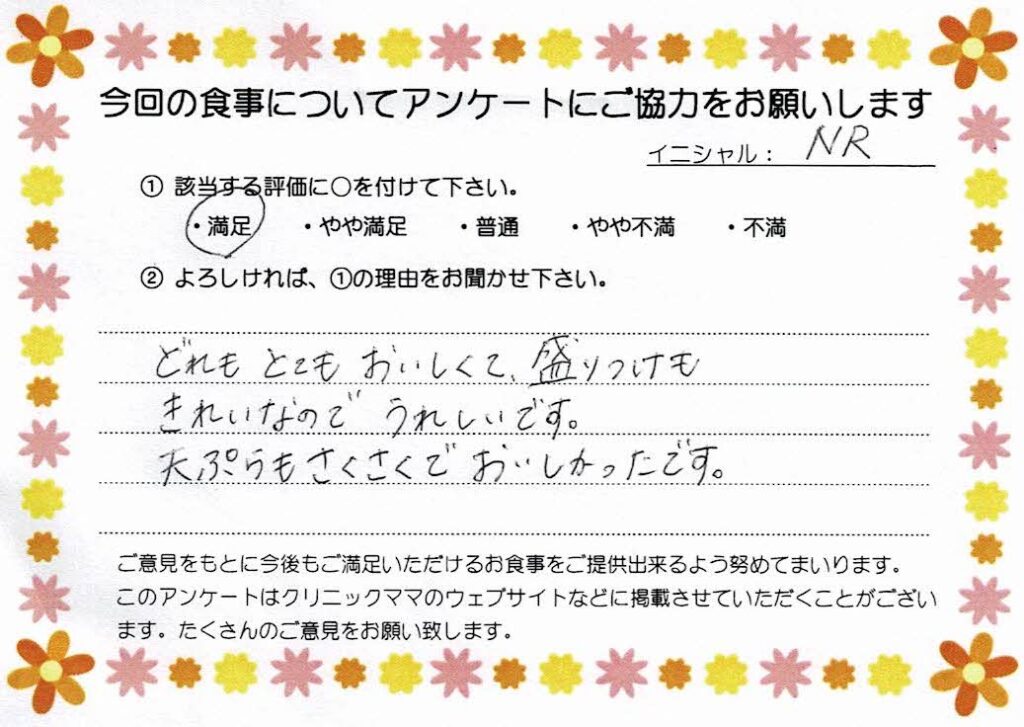 今回の食事についてアンケートにご協力をお願いします
イニシャル： NR
① 該当する評価に○を付けて下さい。
・満足 ・やや満足 ・普通 ・やや不満 ・不満
② よろしければ、①の理由をお聞かせ下さい。
どれも とても おいしくて、盛りつけも
きれいなので うれしいです。
天ぷらもさくさくで おいしかったです。
ご意見をもとに今後もご満足いただけるお食事をご提供出来るよう努めてまいります。
このアンケートはクリニックママのウェブサイトなどに掲載させていただくことがござい
ます。たくさんのご意見をお願い致します。